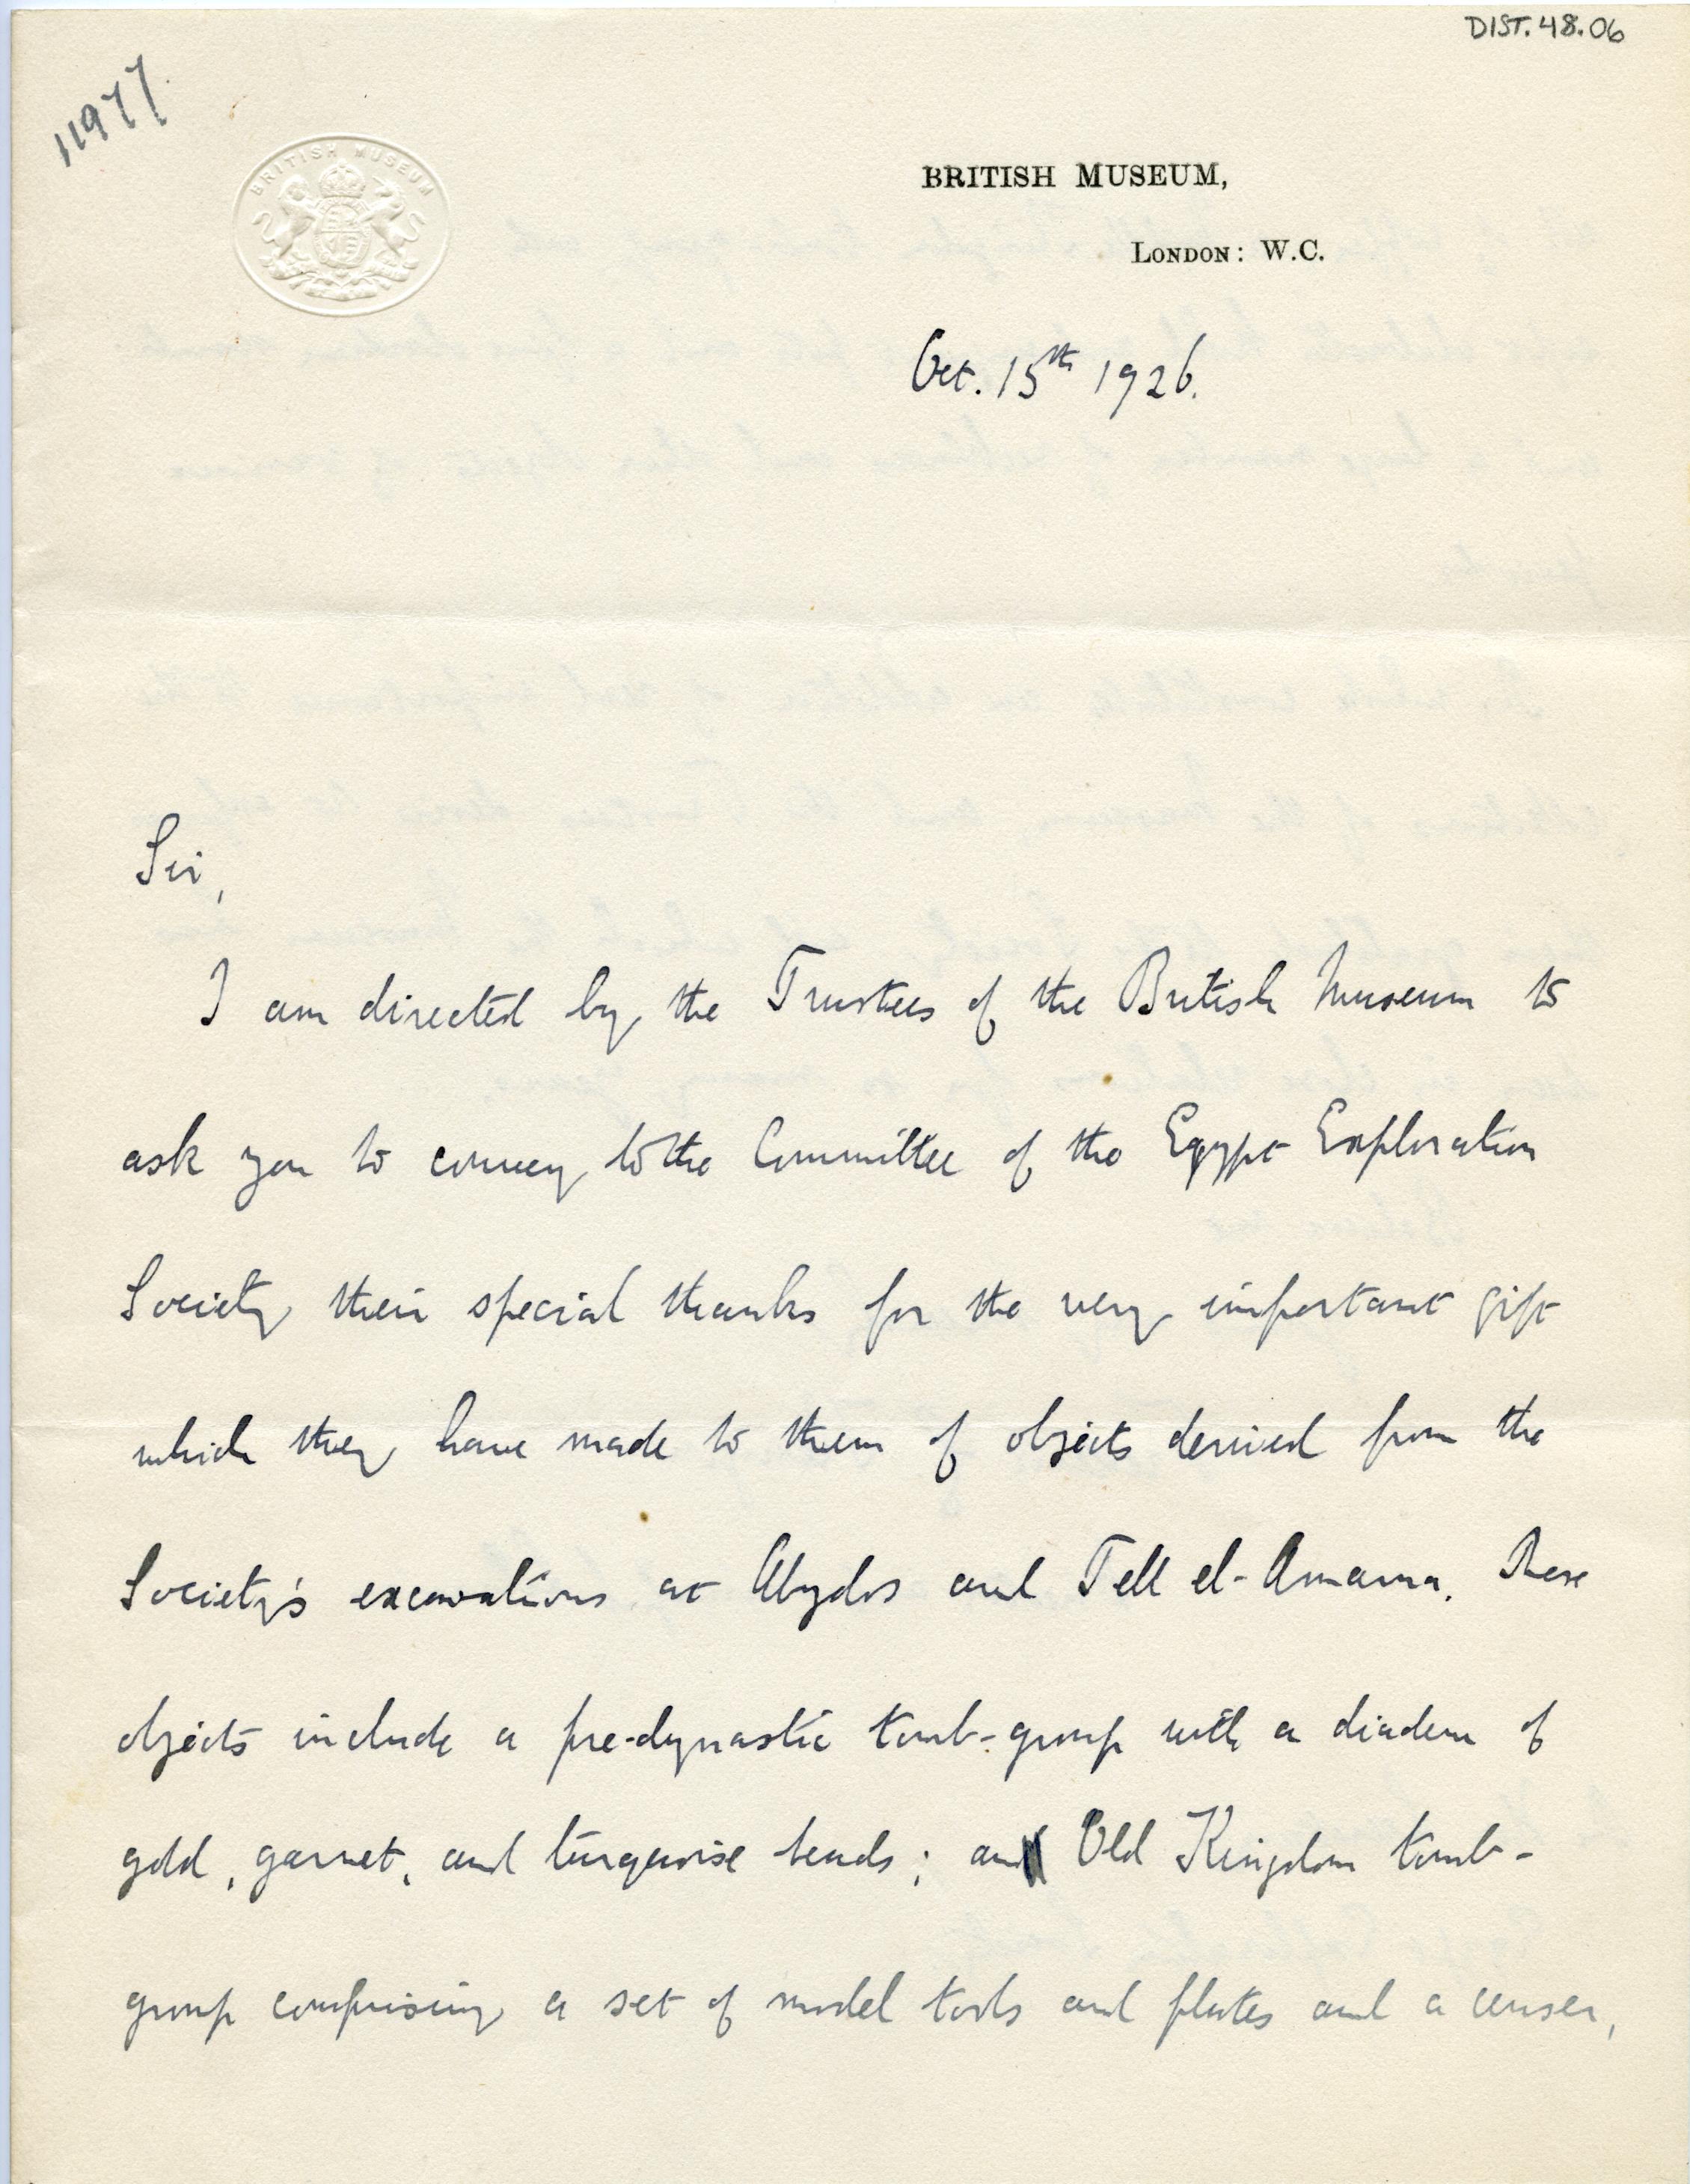 DIST.48.06
11977
BRITISH MUSEUM
BRITISH MUSEUM,
LONDON: W.C.
Oct. 15th 1926.
Sir,
I am directed by the Trustees of the British Museum to
ask you to convey to the Committee of the Egypt Exploration
Society their special thanks for the very important gift
which they have made to them of objects derived from the
Society's excavations at Abydos and Tell el-Amarna. These
objects include a pre-dynastic tomb-group with a diadem of
gold, garnet, and turquoise beads; an Old Kingdom tomb-
group comprising a set of model tools and plates and a censer,